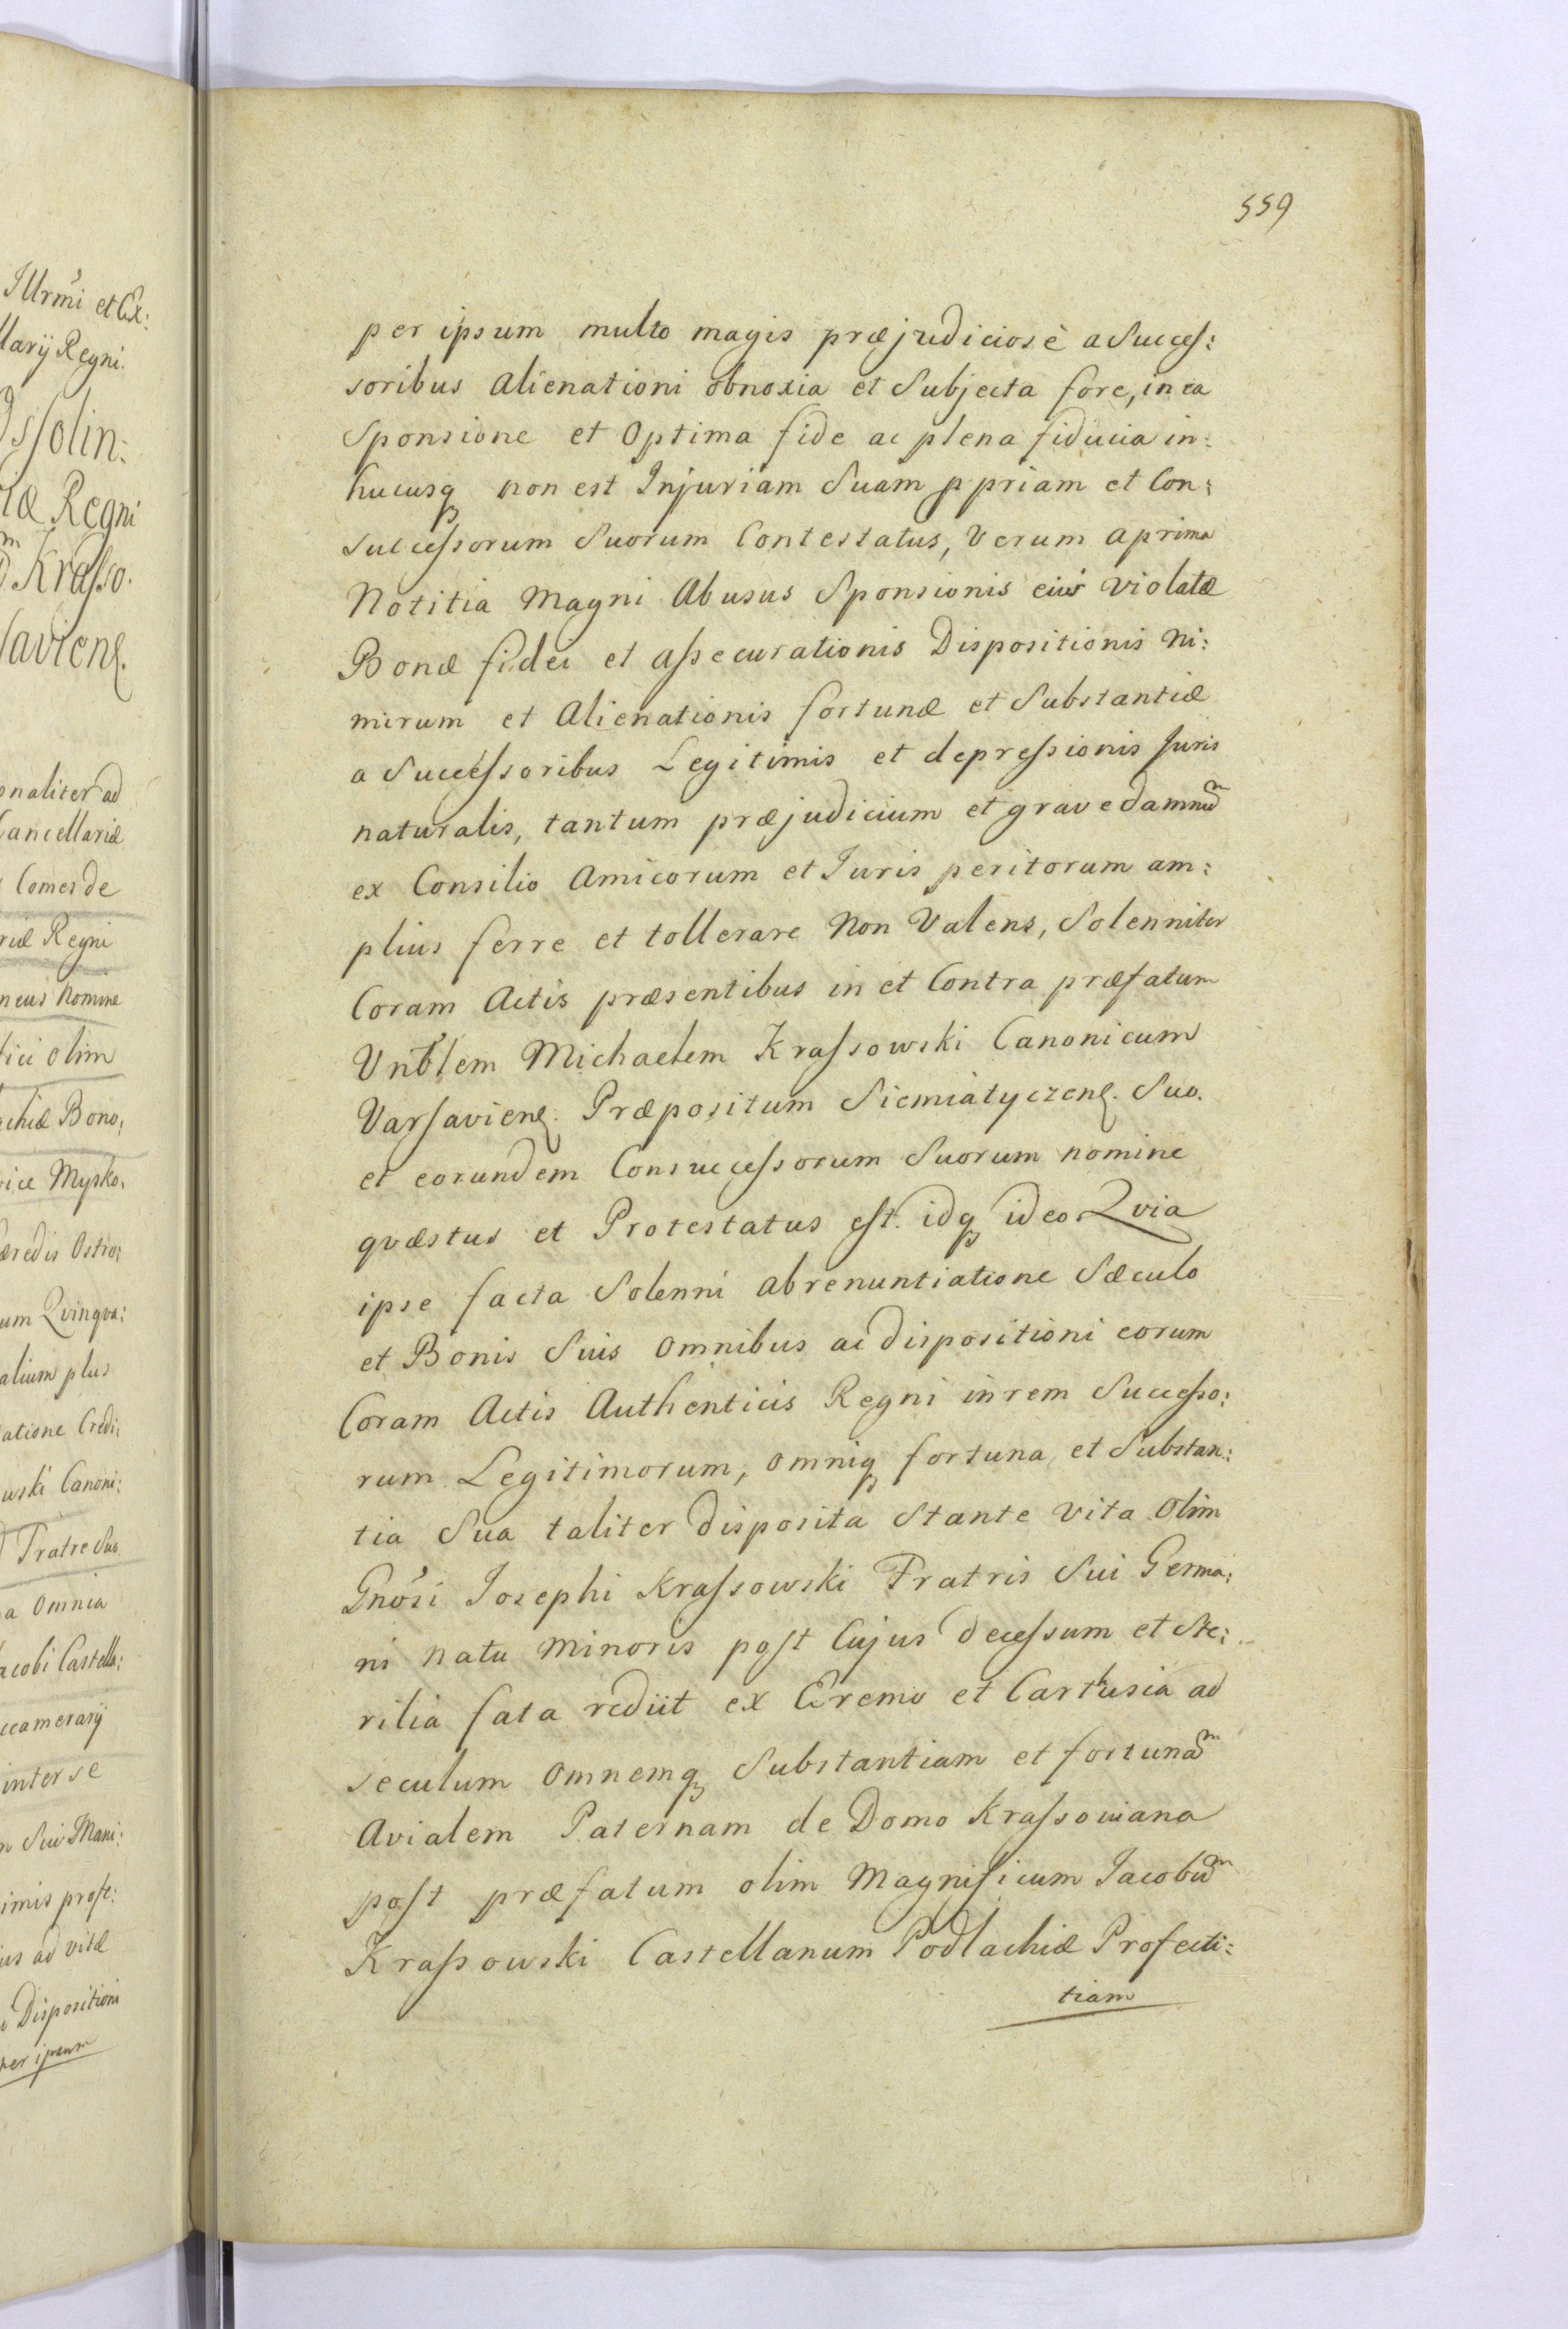 559
per ipsum multo magis præjudiciosè a Succes:
soribus alienationi obnoxia et Subjecta fore, in ea
Sponsione et Optima fide ac plena fiducia in:
hucusq non est Injuriam Suam ppriam et Con:
successorum Suorum Contestatus, verum a prima
Notitia Magni Abusus Sponsionis eius violatæ
Bonæ fidei et assecurationis Dispositionis Ni:
mirum et Alienationis fortunæ et Substantiæ
a Successoribus Legitimis et depressionis Juris
naturalis, tantum præjudicium et grave damnum
ex Consilio Amicorum et Juris peritorum am:
plius ferre et tollerare Non Valens, Solenniter
Coram Actis præsentibus in et Contra præfatum
Vnblem Michaelem Krassowski Canonicum
Varsavien. Præpositum Siemiatyczen. Suo.
et eorundem Consuccessorum Suorum nomine
qvæstus et Protestatus est. idq ideo Qvia
ipse facta Solenni abrenuntiatione Sæculo
et Bonis Suis Omnibus ac dispositioni eorum
Coram Actis Authenticis Regni in rem Successo:
rum Legitimorum, omniq fortuna et Substan:
tia Sua taliter disposita Stante vita Olim
Gnosi Josephi Krassowski Fratris Sui Germa:
ni natu Minoris post Cujus decessum et Ste:
rilia fata rediit ex Eremo et Carthusia ad
seculum omnemq Substantiam et fortunam
Avialem Paternam de Domo Krassoviana
post præfatum olim Magnificum Jacobum
Krassowski Castellanum Podlachiæ Profecti:
tiam
Illrmi et Ex:
llarij Regni.
ssolin:
iæ Regni
Krasso.
savien.
onaliter ad
Cancellariæ
Comes de
riæ Regni
neus Nomine
olim
chiæ Bono:
vice Mysko.
æredis Ostro:
um Qvinqva:
alium plus
atione Credi:
wski Canoni:
Fratre Suo
a Omnia
acobi Castella:
ccamerarij
inter se
Sui Mani:
imis profe:
us ad vitæ
i Dispositioni
per ipsum